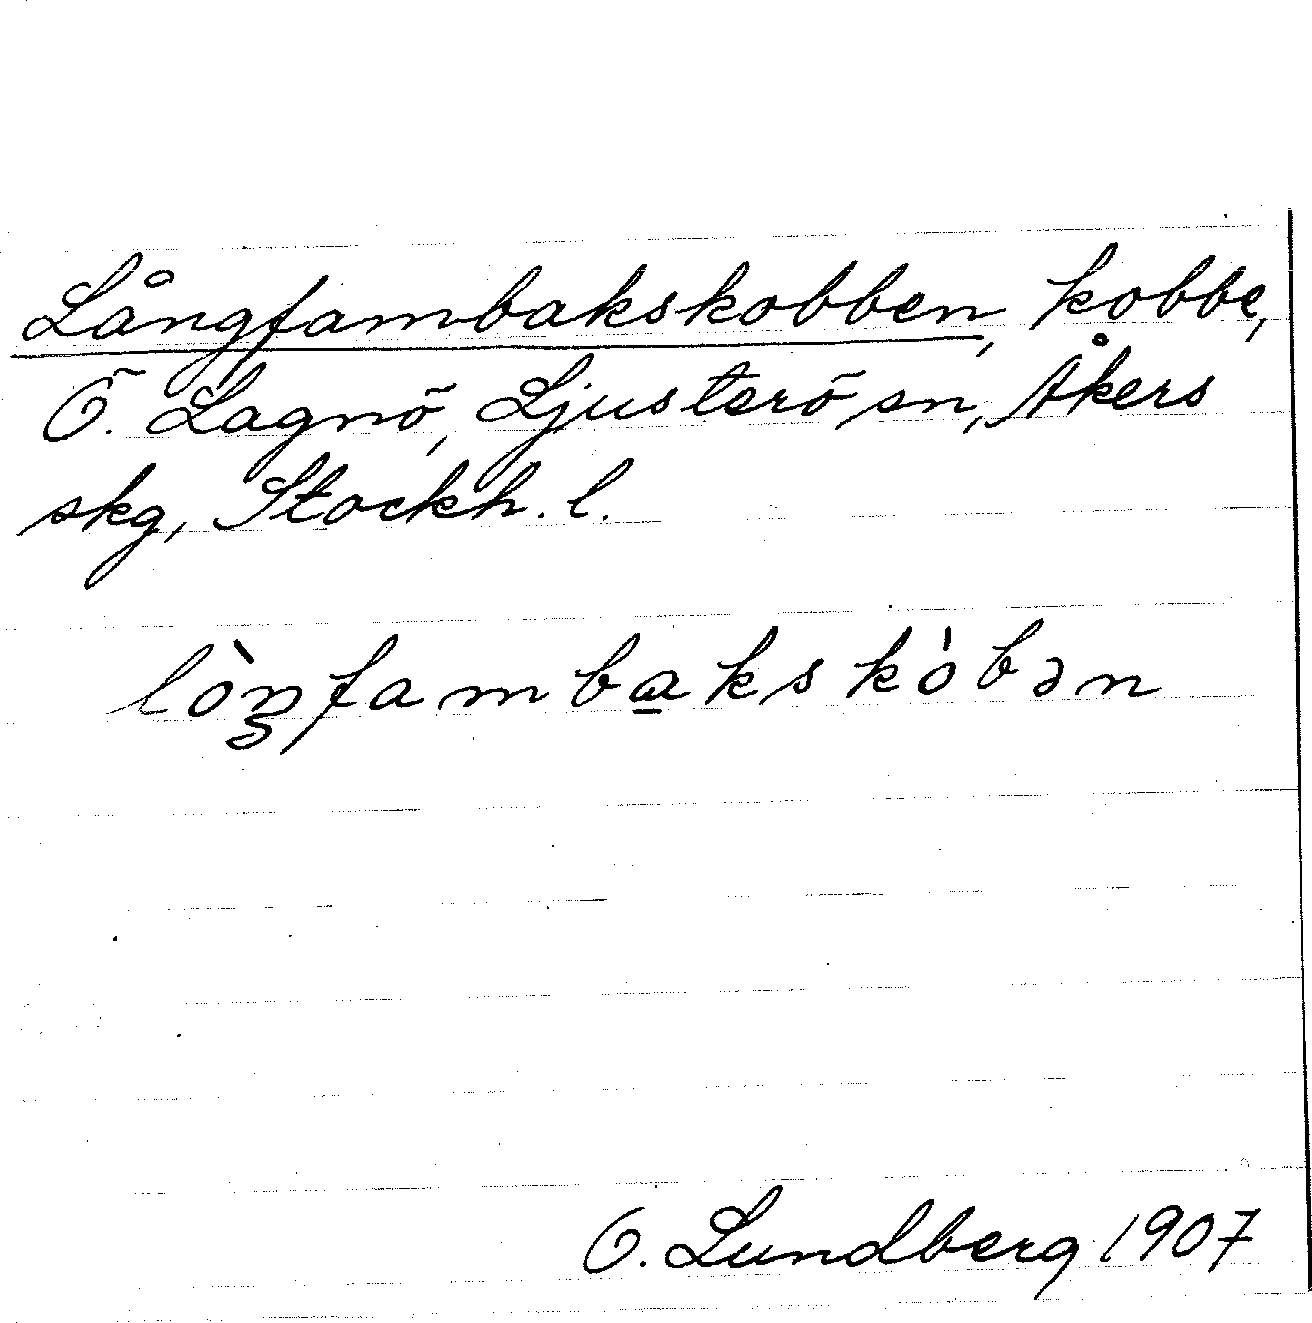 Långfambakskobben, kobbe,
Ö. Lagnö, Ljusterö sn, Åkers
skg, Stockh. l.
lòŋfamba̲kskȯbən
O. Lundberg 1907